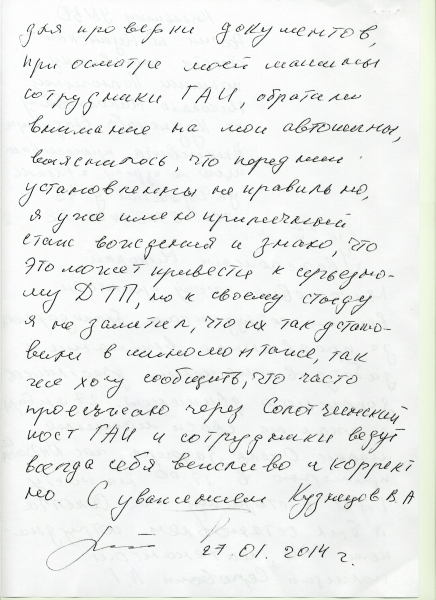 для проверки документов,
при осмотре моей машины
сотрудники ГАИ, обратили
внимание на мои автошины,
выяснилось, что передние
установленны не правильно,
я уже имею приличный
стаж вождения и знаю, что
это может привести к серьезно-
му ДТП, но к своему стыду
я не заметил, что их так устано-
вили в шиномонтаже, так
же хочу сообщить, что часто
проезжаю через Солотчинский
пост ГАИ и сотрудники ведут
всегда себя вежливо и коррект
но. С уважением Кузнецов В.А
27.01.2014 г.